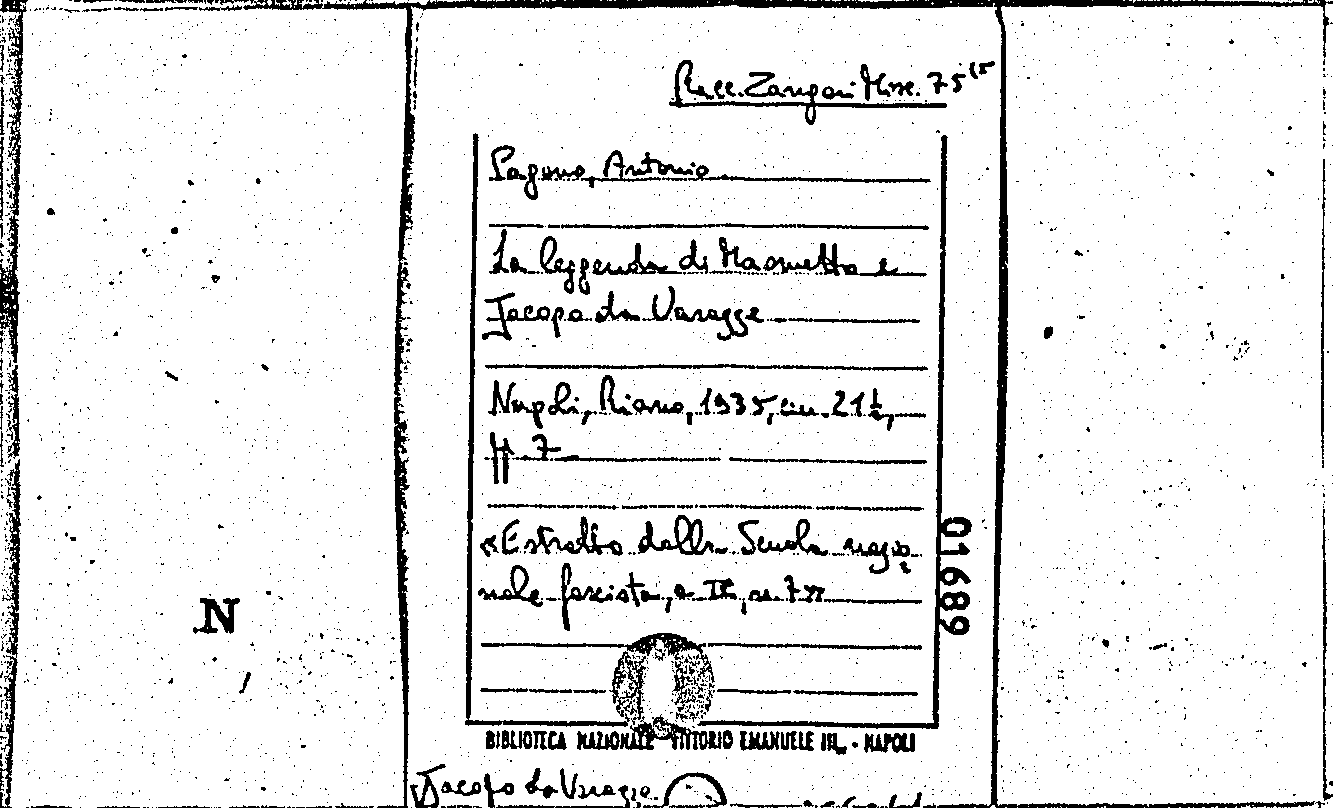 Racc. Zangari Misc. 75 (5
Pagano, Antonio
La leggenda di Maometto e
Jacopo da Varagge
Napoli, Rians, 1935, cm. 21½,
pp 7
«Estratto dalla Scuola nazio-
nale fascista, a II, n. 7»
01689
N
BIBLIOTECA NAZIONALE VITTORIO EMANUELE III - NAPOLI
Jacopo da Varagge